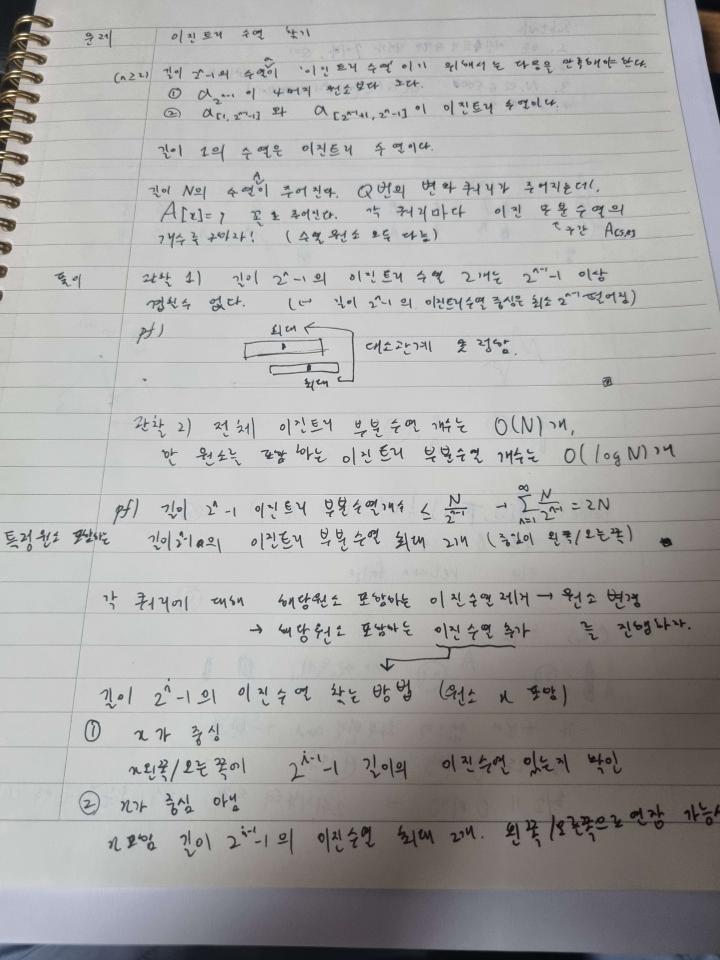 문제 이진트리 수열 찾기
(n≥2) 길이 2ⁿ-1의 수열이 이진트리 수열이기 위해서는 다음을 만족해야 한다.
① a_{2^{n-1}}이 나머지 원소보다 크다.
② a[1, 2^{n-1}-1] 와 a[2^{n-1}+1, 2ⁿ-1]이 이진트리 수열이다.
길이 1의 수열은 이진트리 수열이다.
A
길이 N의 수열이 주어진다. Q번의 변화 쿼리가 주어지는데,
A[x]=y 꼴로 주어진다. 각 쿼리마다 이진 부분수열의
개수를 구하자! (수열 원소 모두 다름) 구간 A[s,e]
풀이 관찰 1) 길이 2ⁿ-1의 이진트리 수열 2개는 2^{n-1}-1 이상
겹칠수 없다. (↔ 길이 2ⁿ-1의 이진트리수열 중심은 최소 2^{n-1} 떨어짐)
pf) 최대
대소관계 못 정함.
최대
관찰 2) 전체 이진트리 부분수열 개수는 O(N)개,
한 원소를 포함하는 이진트리 부분수열 개수는 O(logN)개
pf) 길이 2ⁿ-1 이진트리 부분수열개수 ≤ N/2^{n-1} → ∑_{n=1}^{∞} N/2^{n-1} = 2N
특정원소 포함하는 길이 2ⁿ-1의 이진트리 부분 수열 최대 2개 (중심이 왼쪽/오른쪽)
각 쿼리에 대해 해당원소 포함하는 이진수열 제거 → 원소 변경
→ 해당원소 포함하는 이진수열 추가 를 진행하자.
길이 2ⁱ-1의 이진수열 찾는 방법 (원소 x 포함)
① x가 중심
x왼쪽/오른쪽에 2^{i-1}-1 길이의 이진수열 있는지 확인
② x가 중심 아님
x포함 길이 2^{i-1}-1의 이진수열 최대 2개. 왼쪽/오른쪽으로 연장 가능